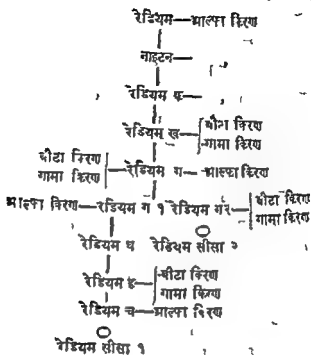 रेडियम— आल्फा किरण
नाइटन—
रेडियम क—
रेडियम ख— बीटा किरण
गामा किरण
बीटा किरण
गामा किरण —रेडियम ग —आल्फा किरण
आल्फा किरण —रेडियम ग १ रेडियम ग२— बीटा किरण
गामा किरण
रेडियम घ रेडियम सीसा २
रेडियम ङ— बीटा किरण
गामा किरण
रेडियम च— आल्फा किरण
रेडियम सीसा १